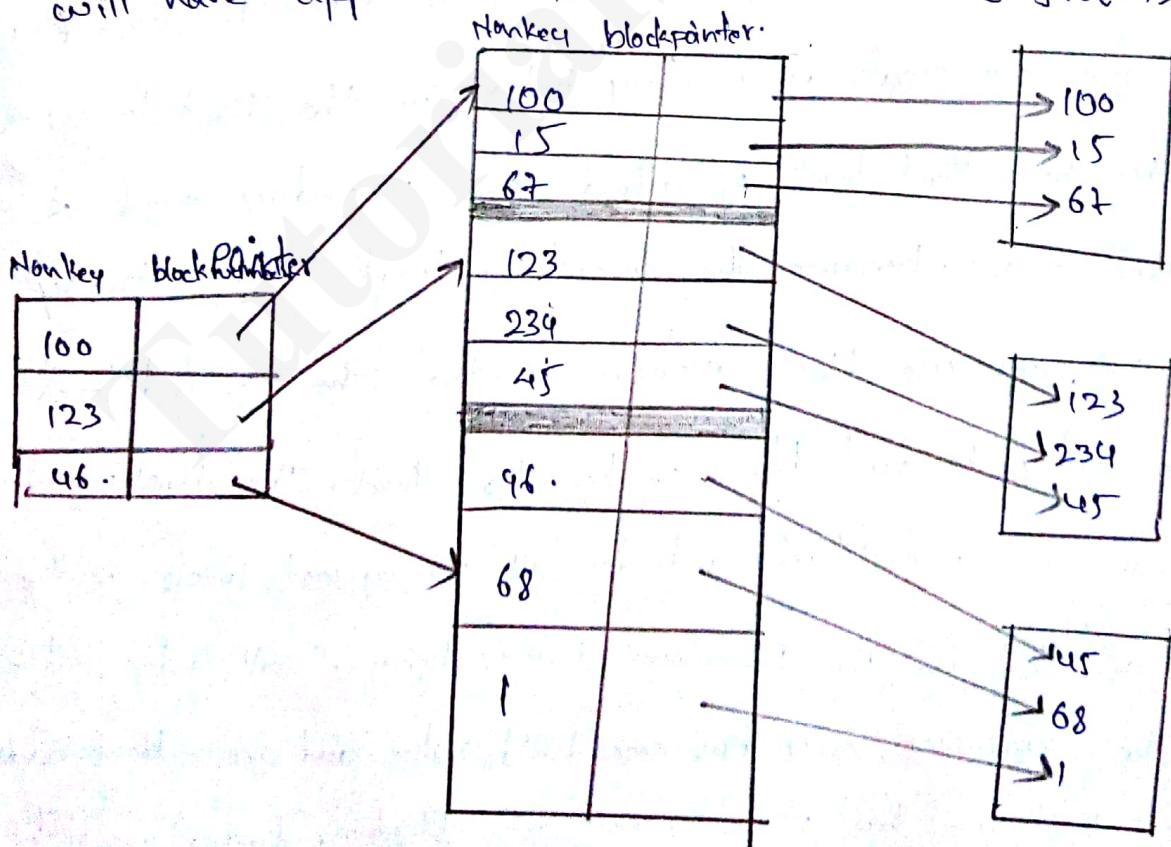 will have
Nonkey blockpointer.
100
15
67
123
234
45
96.
68
1
Nonkey blockPointer
100
123
46.
100
15
67
123
234
45
45
68
1
Tutorial